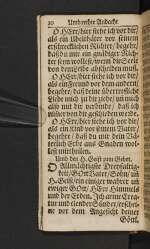 20 Andacht
O HErr, hier stehe ich vor dir,
als ein Übelthäter vor seinem
erschrecklichen Richter, begehr,
daß du mir ein gnädiger Rich-
ter seyn wollest, wenn die Seel
von dem Leibe abscheiden muß.
O HErr, hier stehe ich vor dir,
als ein Freund vor dem andern,
begehr, daß deine
Liebe mich zu dir ziehe, und mich
also mit dir verbinde, daß
nimmer von dir geschieden werde.
O HErr, hier stehe ich vor dir,
als ein Kind vor einem Vater,
begehr, daß du mir dein Vä-
terlich Erbe aus Gnaden wol-
lest mittheilen.
Und der H. Geist
O Allmächtigste Dreyfaltig-
keit, GOtt Vater, Sohn, und
H. Geist, ein einiger wahrer und
ewiger GOtt, HErr Himmels
und der Erden, Ich arme Crea-
tur und sündiger, er-
scheine vor dem Angesicht deiner
Gött-